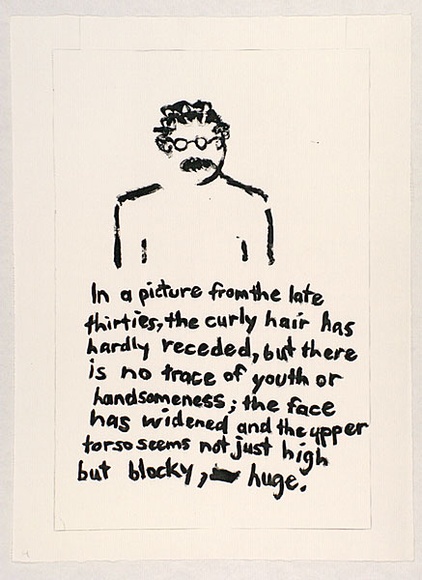 In a picture from the late
thirties, the curly hair has
hardly receded, but there
is no trace of youth or
handsomeness; the face
has widened and the upper
torso seems not just high
but blocky, huge.